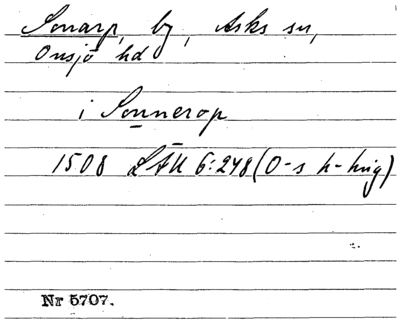 Sonarp, by, Asks sn,
Onsjö hd
i Sonnerop
1508 LÄU 6:248 (O-s h-hvig)
Nr 5707.